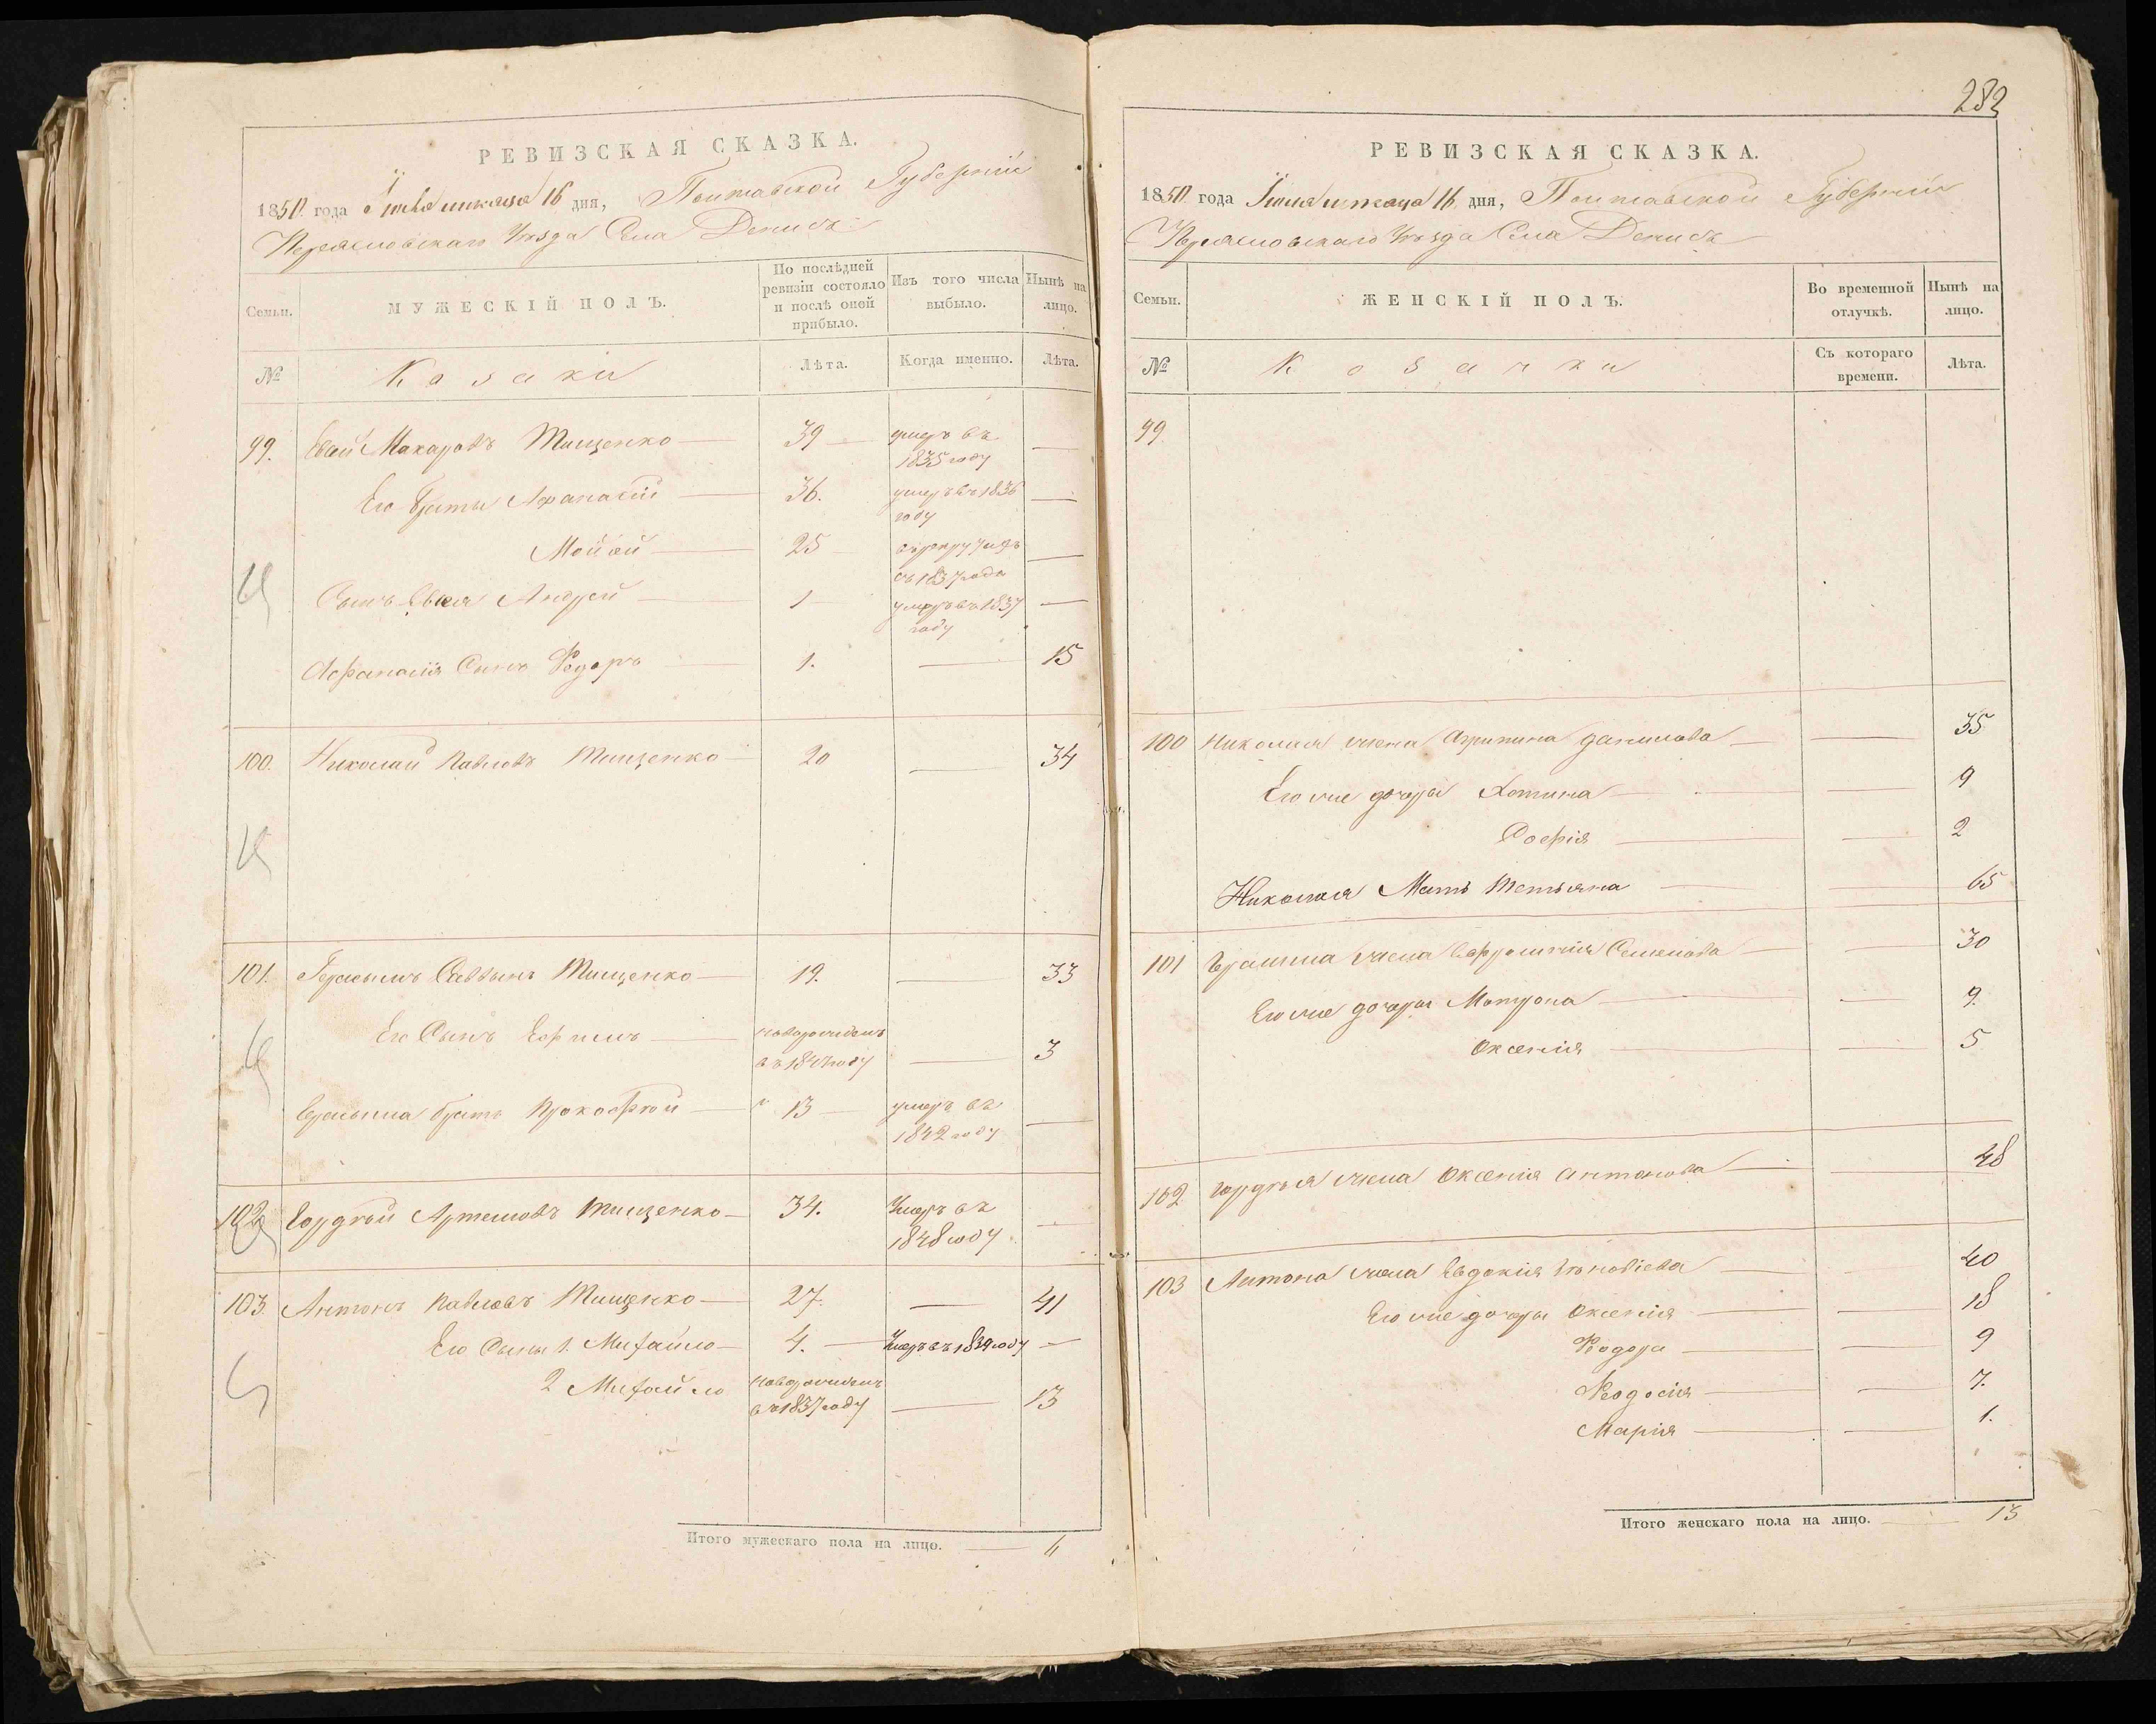 РЕВИЗСКАЯ СКАЗКА.
1850. года Іюня мѣсяца 16 дня, Полтавской Губерніи
Переясловскаго Уѣзда Села Денисъ
Семьи.
МУЖЕСКІЙ ПОЛЪ.
По послѣдней ревизіи состояло и послѣ оной прибыло.
Изъ того числа выбыло.
Нынѣ на лицо.
№
Козаки
Лѣта.
Когда именно.
Лѣта.
99. Макаровъ Тищенко 39 умеръ въ 1835 году
Его Братья Афанасій 36. умеръ въ 1836 году
Мойсей 25 въ рекрутахъ съ 1837 года
Сынъ Андрей 1 умеръ въ 1837 году
Афанасія Сынъ Федоръ 1. 15
100. Николай Павловъ Тищенко 20 34
101. Герасымъ Саввынъ Тищенко 19. 33
Его Сынъ Ефримъ новорожденъ въ 1847 году 3
Ерасыма братъ Прокофтей 13 умеръ въ 1842 году
102 Гордѣй Артемовъ Тищенко 34. Умеръ въ 1848 году
103 Антонъ Павловъ Тищенко 27. 41
Его Сыны 1. Михайло 4. Умеръ въ 1839 году
2 Михайло новорожденъ въ 1837 году 13
Итого мужескаго пола на лицо.
282
РЕВИЗСКАЯ СКАЗКА.
1850. года Іюня мѣсяца 16 дня, Полтавской Губерніи
Переясловскаго Уѣзда Села Денисъ
Семьи.
ЖЕНСКІЙ ПОЛЪ.
Во временной отлучкѣ.
Нынѣ на лицо.
№
Козачки
Съ котораго времени.
Лѣта.
99
100 Николая жена Агрипина данилова 35
Его же дочери Хотина 9
Софія 2
Николая Мать Тетьяна 65
101 Ерасима жена Ефросинія Семенова 30
Его же дочери Мотрона 9.
Оксенія 5
102 Гордѣя жена Оксенія Антонова 48
103 Антона жена Евдокія 40
Его же дочери Оксенія 18
Феодора 9
Феодосія 7.
Марія 1.
Итого женскаго пола на лицо. 13